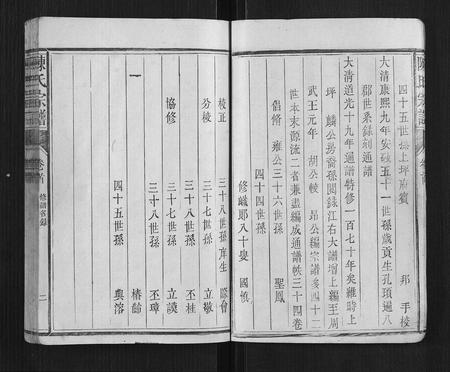 四十五世孫上坪府賓 邦 手校
大清康熙九年安砂五十一世孫歲貢生孔頊遍八
郡世系錄刻通譜
大清道光十九年通譜特修一百七十年矣維時上
坪 麟公房裔孫閱錄江右大譜增上編至周
武王元年 胡公 昂公編宗譜多四十二
世本末源流二省兼盡編成通譜帙三十四卷
倡脩 雍公三十六世孫 聖鳳
四十四世孫
修 郎八十叟 國
校正 三十八世孫庠生 會
分校 三十七世孫 立敬
三十八世孫 丕桂
協修 三十七世孫 立謨
三十八世孫 丕璋
椿齡
四十五世孫 奐溶
陳氏宗譜 卷首 修譜名錄 二
陳氏宗譜 卷首